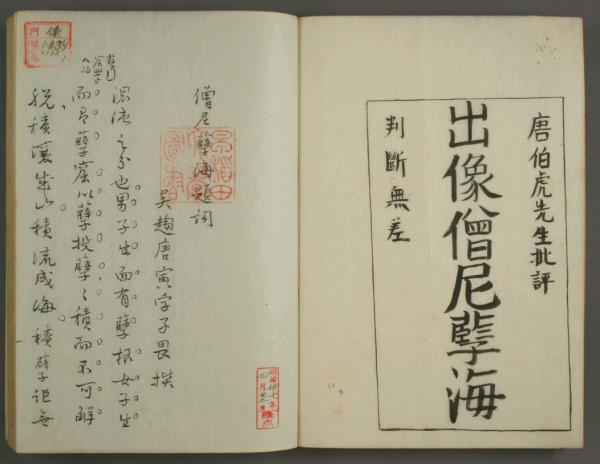 唐伯虎先生批評
出像僧尼孽海
判斷無差
僧尼孽海題詞
吳趨唐寅字子畏撰
混沌之分也男子生而有孽根女子生
而 孽窟以孽投孽〻積而不可解
脫積壤成山積流成海積孽詎無